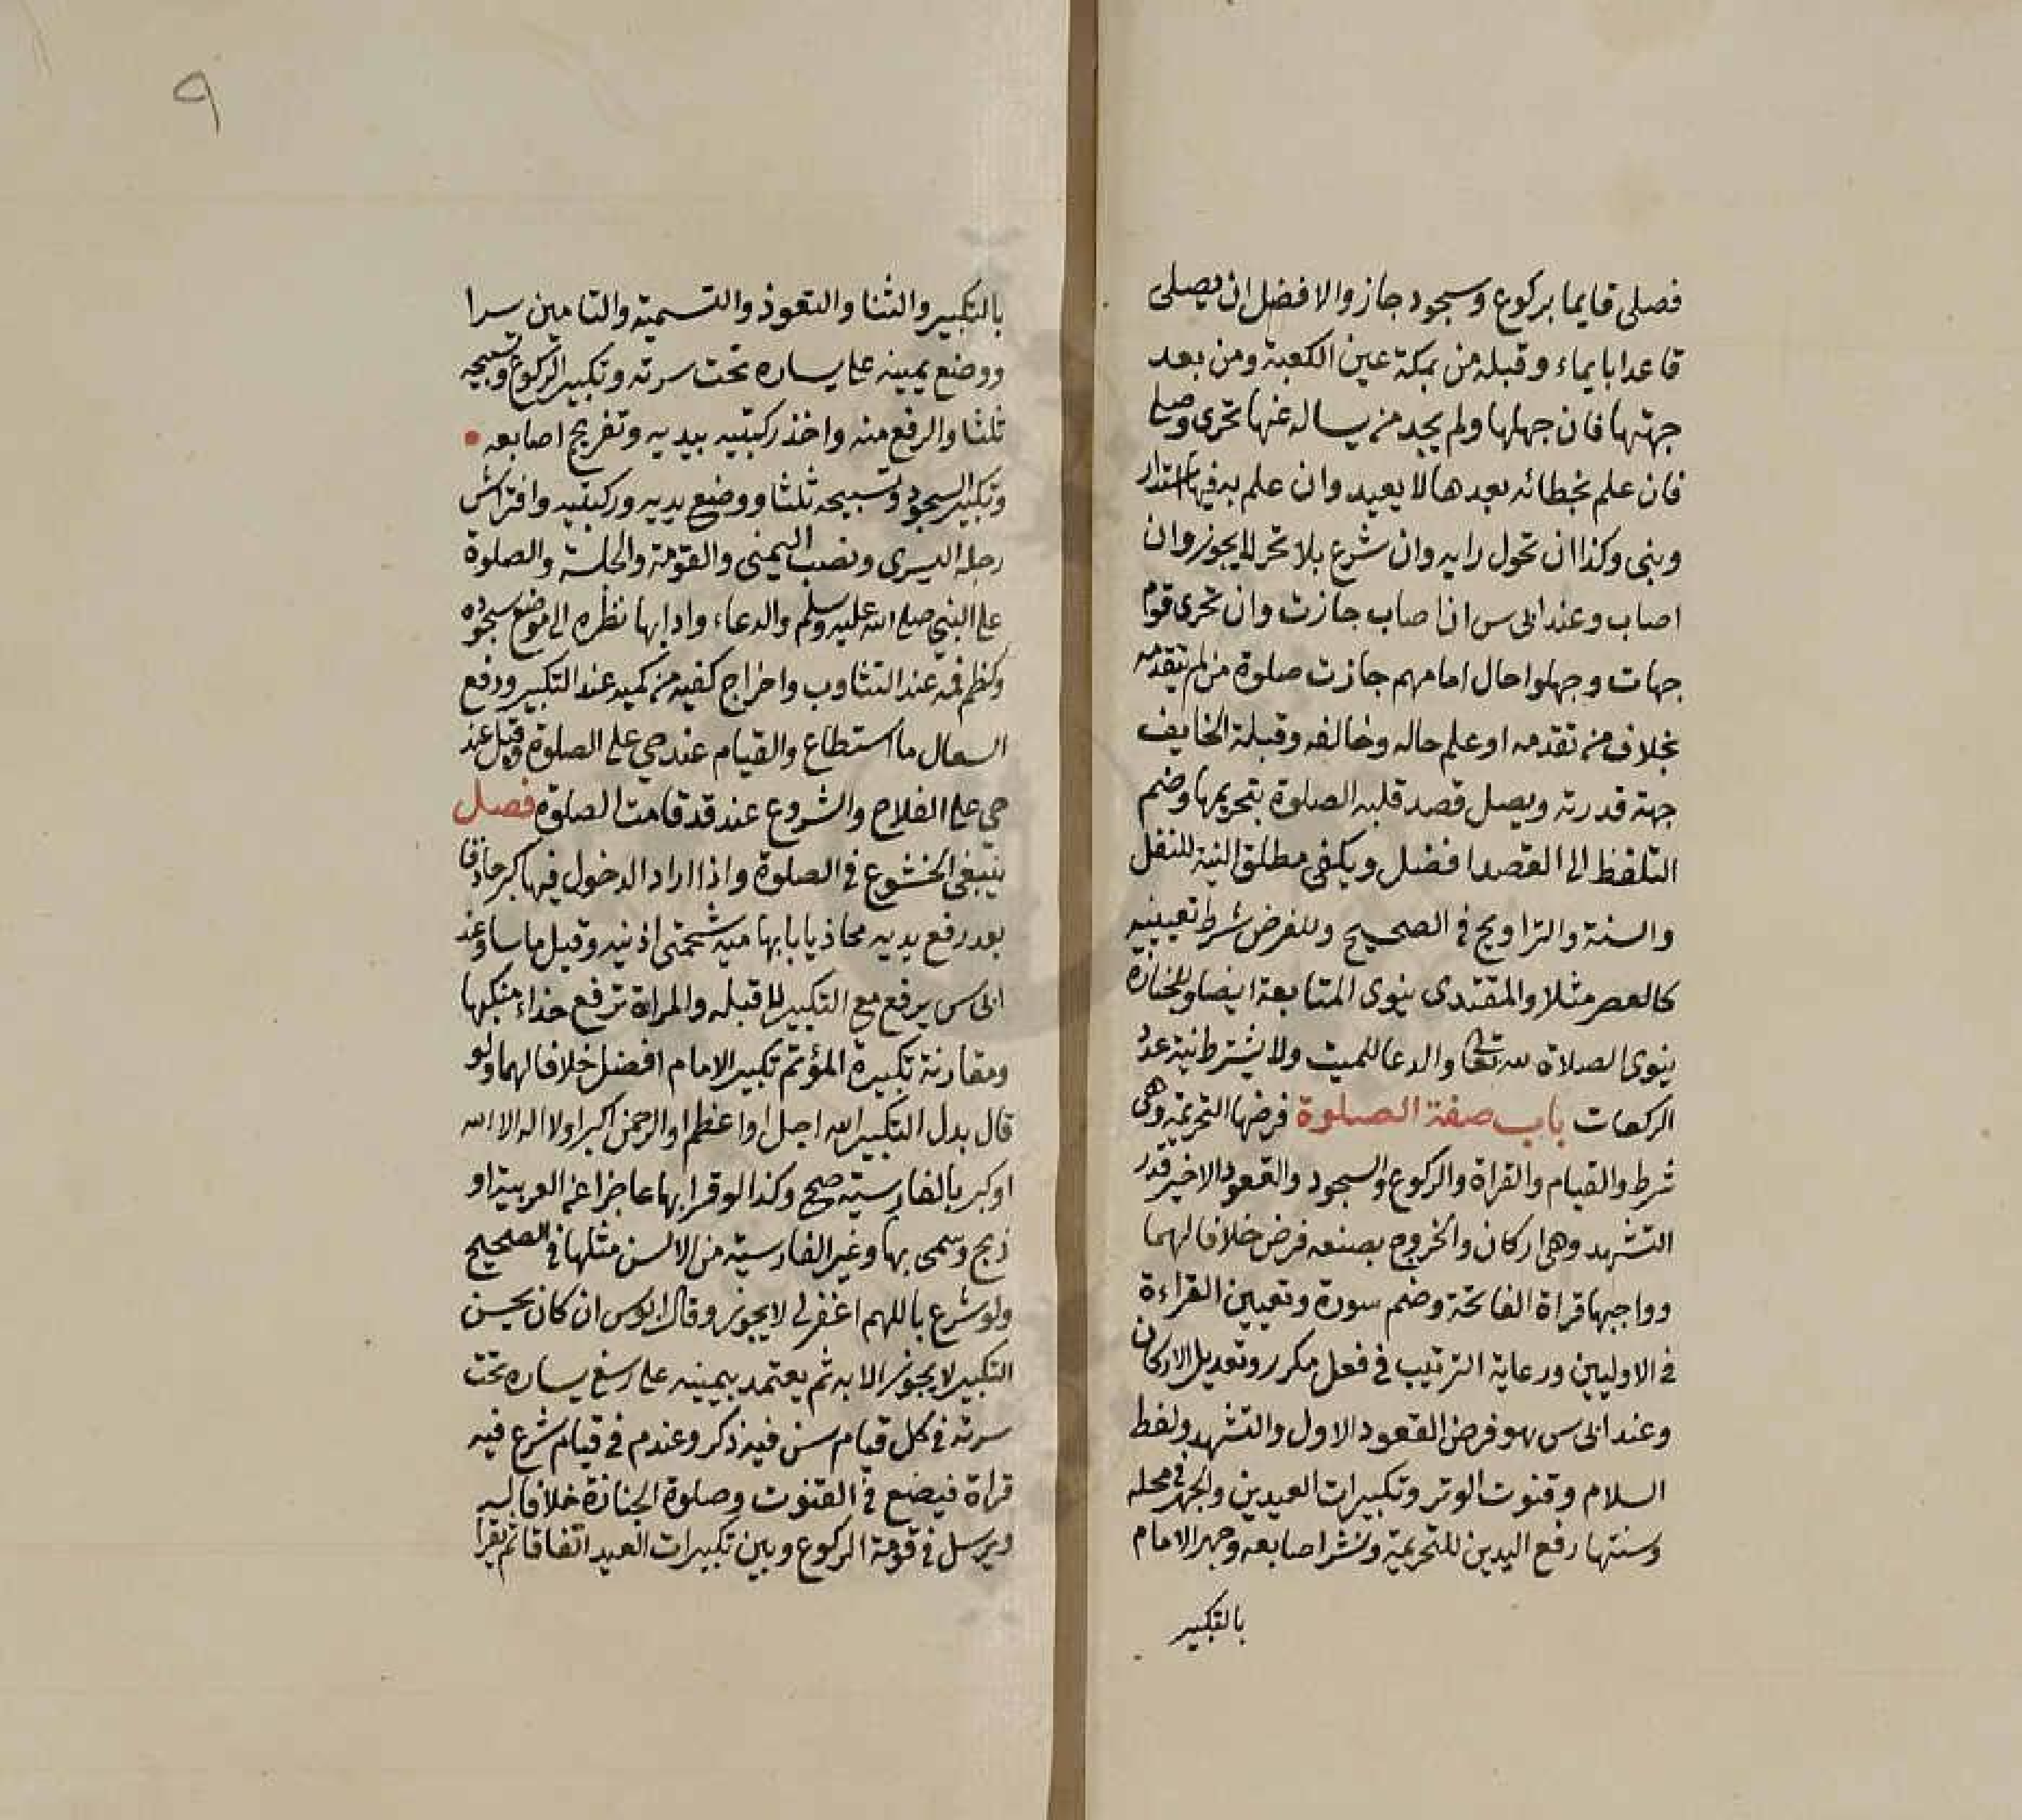 فصلى قايما بركوع وسجود جاز والافضل ان يصلى
قاعدا بايماء وقبلة من بمكة عين الكعبة ومن بعد
جهتها فان جهلها ولم يجد من يساله عنها تحرى وصلى
فان علم بخطائه بعدها لا يعيد وان علم به فيها استدار
وبنى وكذا ان تحول رايه وان شرع بلا تحر لا يجوز وان
اصاب وعند ابى س ان اصاب جازت وان تحرى قوم
جهات وجهلوا حال امامهم جازت صلوة من لم يتقدمه
بخلاف من تقدمه او علم حاله وخالفه وقبلة الخايف
جهة قدرته ويصل قصد قلبه الصلوة بتحريمها وضم
التلفظ الى القصد افضل ويكفى مطلق النية للنفل
والسنة والتراويح فى الصحيح وللفرض شرط تعيينه
كالعصر مثلا والمقتدى ينوى المتابعة ايضا وللجنازة
ينوى الصلاة لله تعالى والدعا للميت ولا يشترط نية عدد
الركعات باب صفة الصلوة فرضها التحريمة وهى
شرط والقيام والقراة والركوع والسجود والقعود الاخير قدر
التشهد وهى اركان والخروج بصنعه فرض خلافا لهما
وواجبها قراة الفاتحة وضم سورة وتعيين القراءة
فى الاوليين ورعاية الترتيب فى فعل مكرر وتعديل الاركان
وعند ابى س هو فرض القعود الاول والتشهد ولفظ
السلام وقنوت الوتر وتكبيرات العيدين والجهر فى محله
وسنتها رفع اليدين للتحريمة ونشر اصابعه وجهر الامام
بالتكبير
٩
بالتكبير والثنا والتعوذ والتسمية والتامين سرا
ووضع يمينه على يساره تحت سرته وتكبير الركوع وتسبيحه
ثلثا والرفع منه واخذ ركبتيه بيديه وتفريج اصابعه
وتكبير السجود وتسبيحه ثلثا ووضع يديه وركبتيه وافتراش
رجله اليسرى ونصب اليمنى والقومة والجلسة والصلوة
على النبى صلى الله عليه وسلم والدعاء وادابها نظره الى موضع سجوده
وكظم فمه عند التثاوب واخراج كفيه من كميه عند التكبير ودفع
السعال ما استطاع والقيام عند حى على الصلوة وقيل عند
حى على الفلاح والشروع عند قد قامت الصلوة فصل
ينبغى الخشوع فى الصلوة واذا اراد الدخول فيها كبر حاذفا
بعد رفع يديه محاذيا بابهاميه شحمتى اذنيه وقيل ماسا وعند
ابى س يرفع مع التكبير لا قبله والمراة ترفع حذاء منكبها
ومقارنة تكبيرة المؤتم تكبير الامام افضل خلافا لهما ولو
قال بدل التكبير الله اجل او اعظم او الرحمن اكبر او لا اله الا الله
او كبر بالفارسية صح وكذا لو قرا بها عاجزا عن العربية او
ذبح وسمى بها وغير الفارسية من الالسن مثلها فى الصحيح
ولو شرع باللهم اغفر لى لا يجوز وقال ابو س ان كان يحسن
التكبير لا يجوز الا به ثم يعتمد بيمينه على رسغ يساره تحت
سرته فى كل قيام سن فيه ذكر وعند م فى قيام شرع فيه
قراة فيضع فى القنوت وصلوة الجنازة خلافا له
ويرسل فى قومة الركوع وبين تكبيرات العيد اتفاقا ثم يقرا